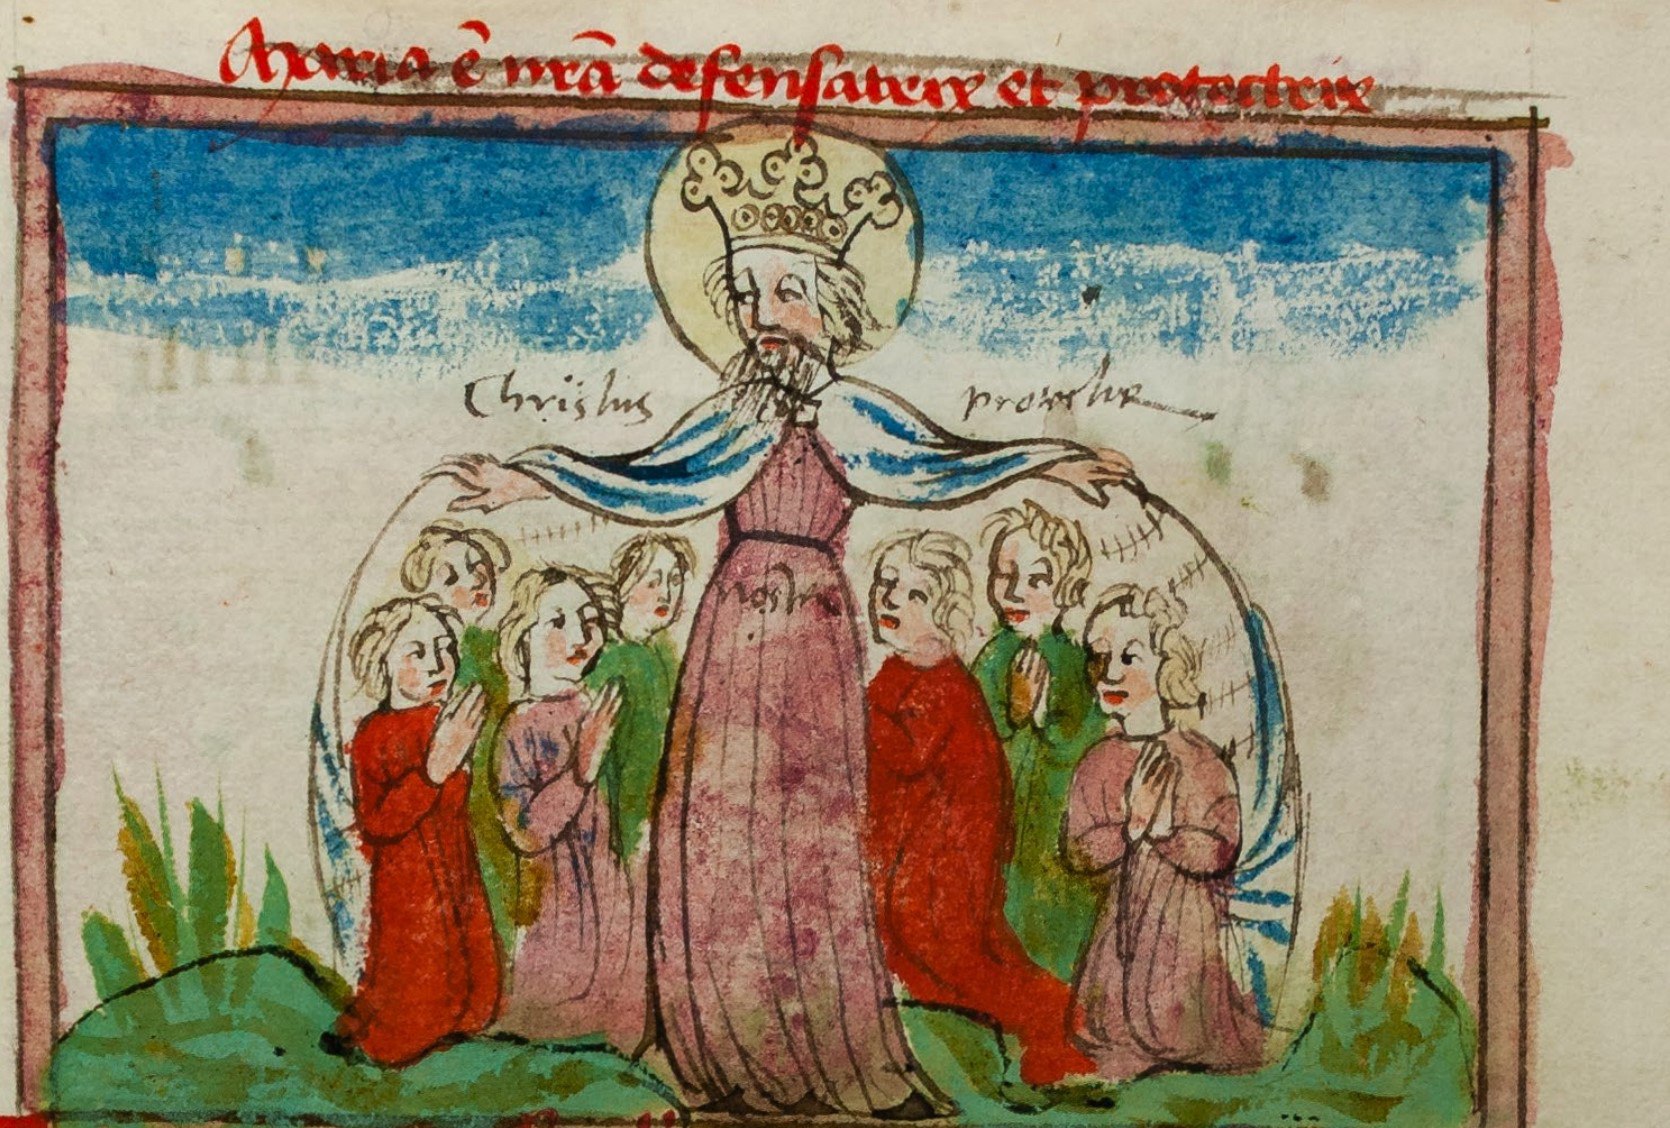 Maria ē nr̄a defensatrix et protectrix
Chriſtus protector
noster